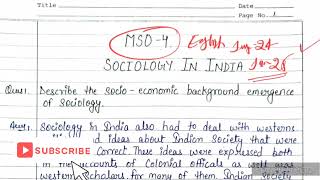 Title
Date
Page No. 1
MSO-4 English Jun-24
SOCIOLOGY IN INDIA Jan-25
Ques1. Describe the socio-economic background emergence
of Sociology.
Ans1. Sociology in India also had to deal with westerns
and ideas about Indian Society that were
SUBSCRIBE Correct. These ideas were expressed both
in the accounts of Colonial officals as well was
western Scholars. for many of them Indian Society